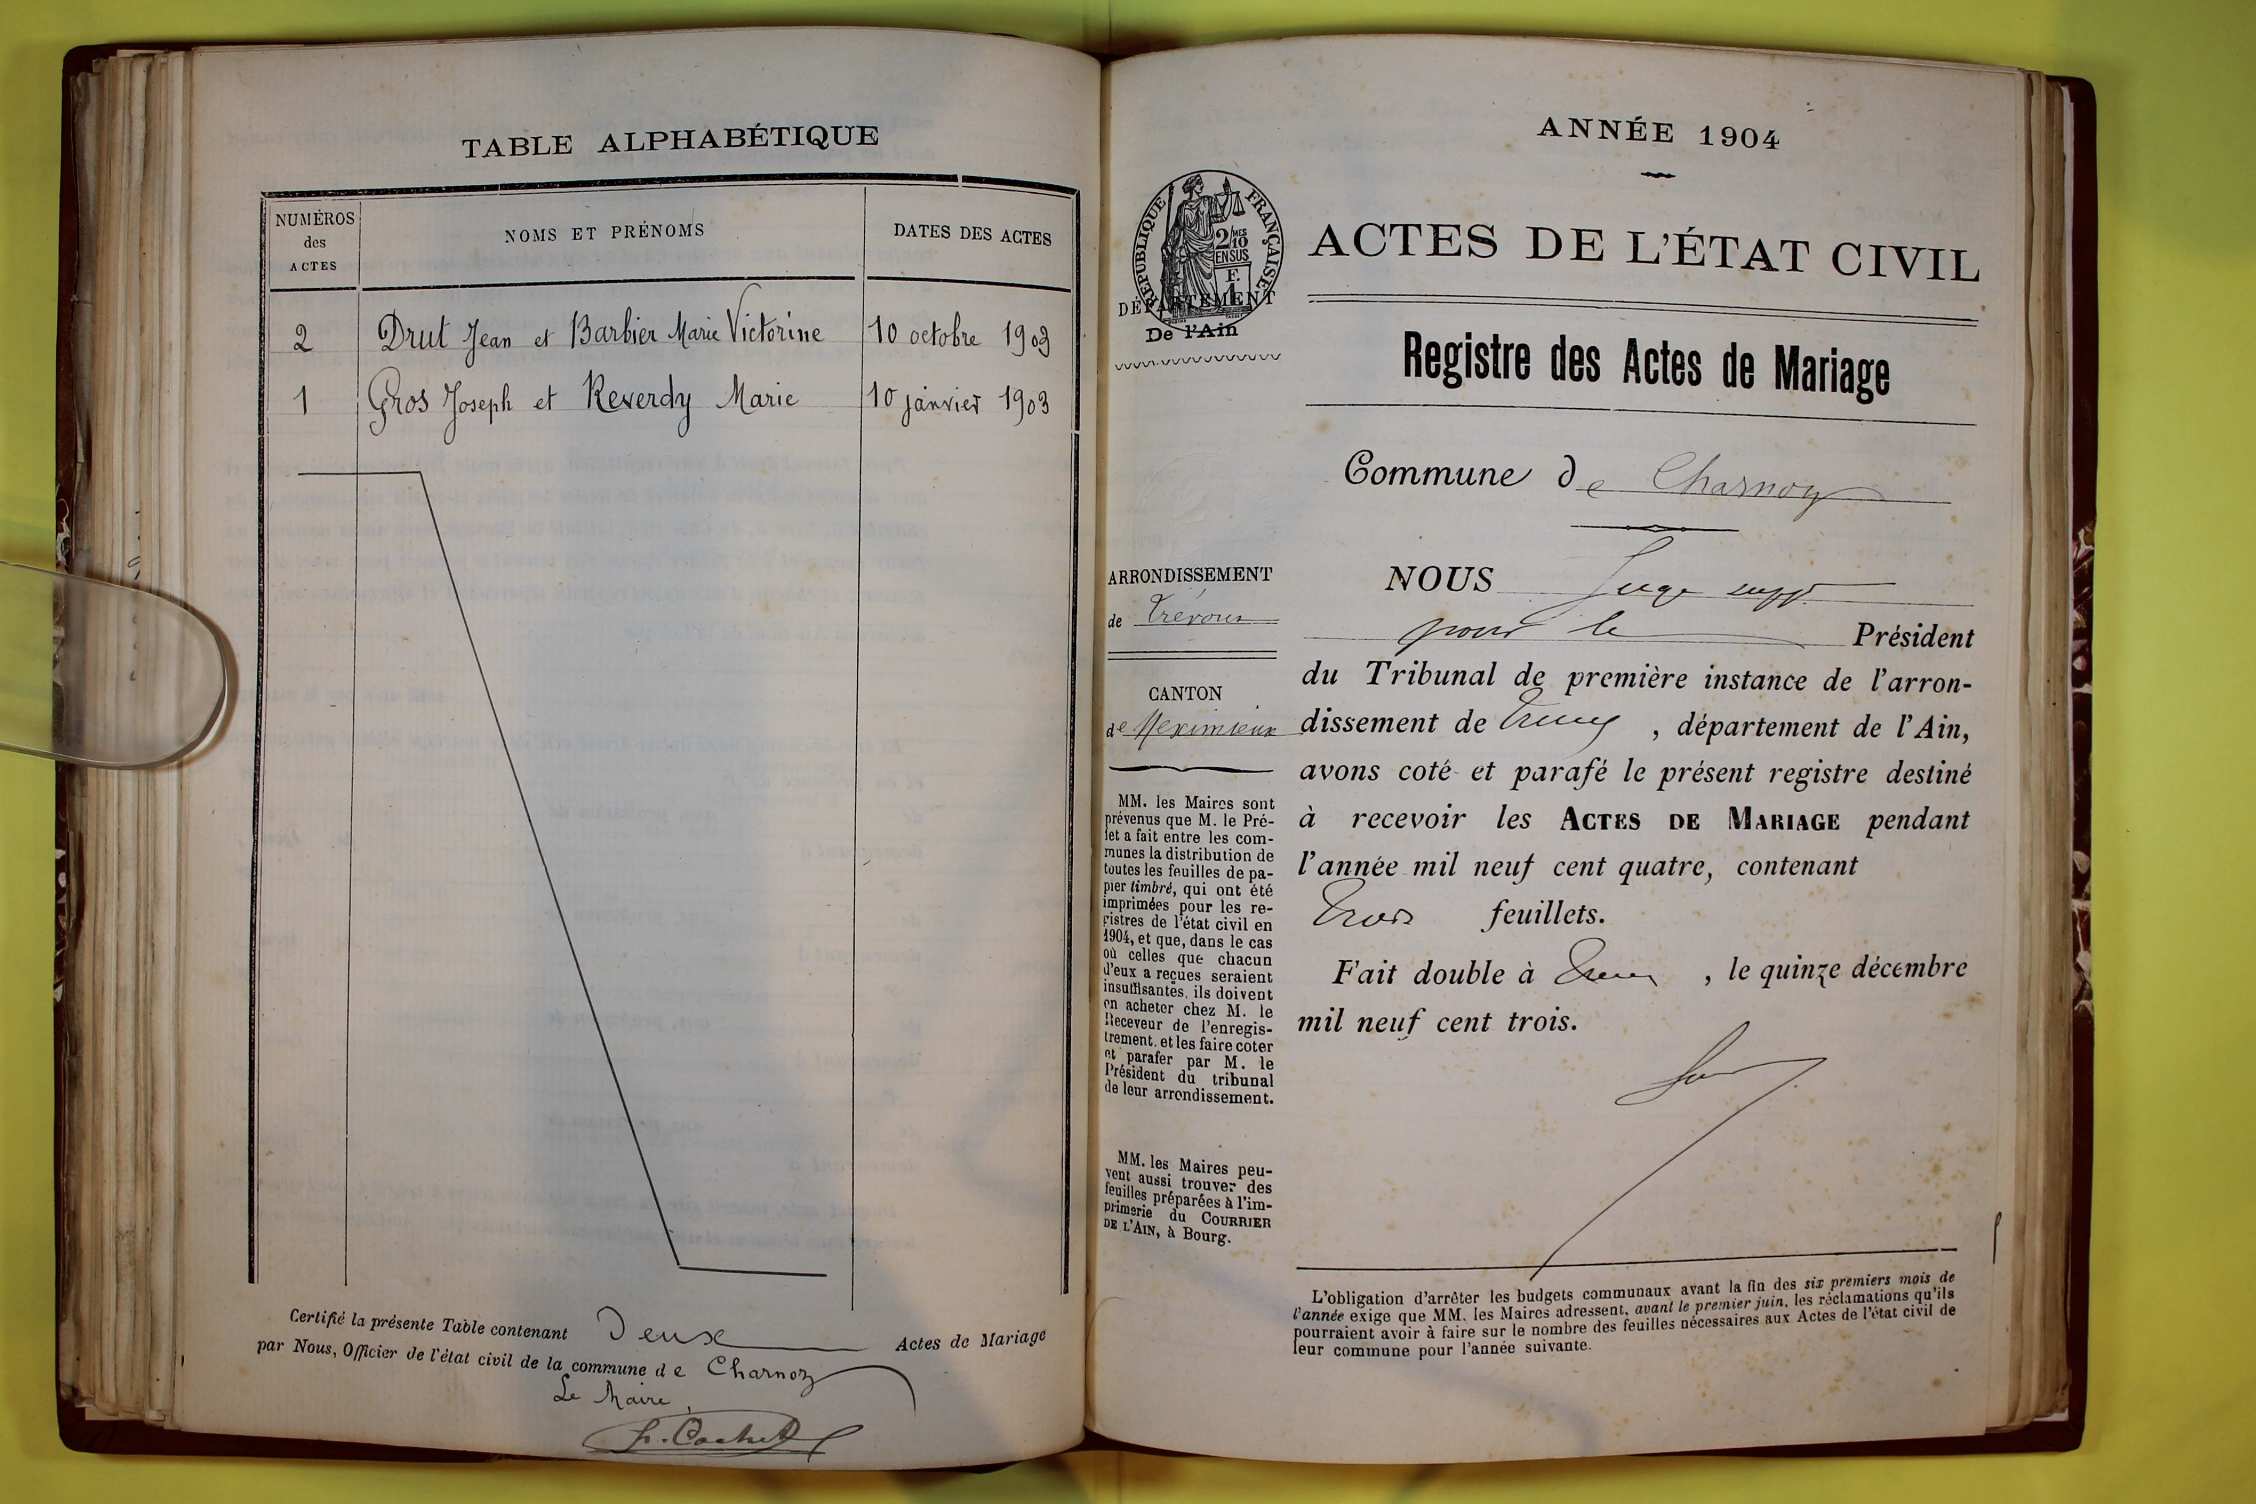 TABLE ALPHABÉTIQUE
NUMÉROS
des
ACTES
NOMS ET PRÉNOMS
DATES DES ACTES
2 Drut Jean et Barbier Marie Victorine 10 octobre 1903
1 Gros Joseph et Reverdy Marie 10 janvier 1903
Certifié la présente Table contenant Deux Actes de Mariage
par Nous, Officier de l'état civil de la commune de Charnoz
Le Maire,
ANNÉE 1904
RÉPUBLIQUE FRANÇAISE
2/10 MES
EN SUS
F.
1
DÉPARTEMENT
De l'Ain
ACTES DE L'ÉTAT CIVIL
Registre des Actes de Mariage
Commune de Charnoz
ARRONDISSEMENT
de Trévoux
CANTON
de Meximieux
MM. les Maires sont
prévenus que M. le Pré-
fet a fait entre les com-
munes la distribution de
toutes les feuilles de pa-
pier timbré, qui ont été
imprimées pour les re-
gistres de l'état civil en
1904, et que, dans le cas
où celles que chacun
d'eux a reçues seraient
insuffisantes, ils doivent
en acheter chez M. le
Receveur de l'enregis-
trement, et les faire coter
et parafer par M. le
Président du tribunal
de leur arrondissement.
MM. les Maires peu-
vent aussi trouver des
feuilles préparées à l'im-
primerie du COURRIER
DE L'AIN, à Bourg.
NOUS Juge suppt
pour le Président
du Tribunal de première instance de l'arron-
dissement de , département de l'Ain,
avons coté et parafé le présent registre destiné
à recevoir les ACTES DE MARIAGE pendant
l'année mil neuf cent quatre, contenant
Trois feuillets.
Fait double à , le quinze décembre
mil neuf cent trois.
L'obligation d'arrêter les budgets communaux avant la fin des six premiers mois de
l'année exige que MM. les Maires adressent, avant le premier juin, les réclamations qu'ils
pourraient avoir à faire sur le nombre des feuilles nécessaires aux Actes de l'état civil de
leur commune pour l'année suivante.